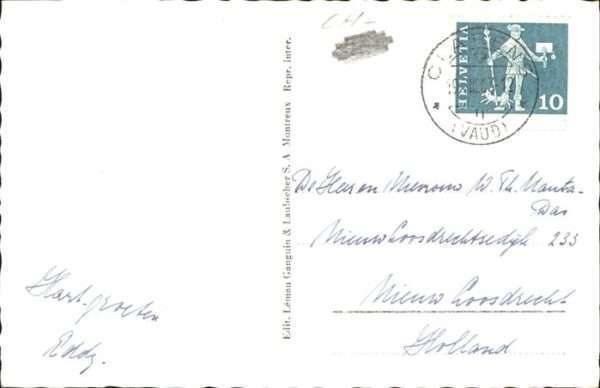 CH-
HELVETIA
10
(VAUD)
Edit. Léman Ganguin & Laubscher S. A Montreux Repr. inter.
De Heeren Mevrouw W. Th. Manta-
Das
Nieuw Loosdrechtsedijk 233
Nieuw Loosdrecht
Holland
Hart. groeten
Eddy.